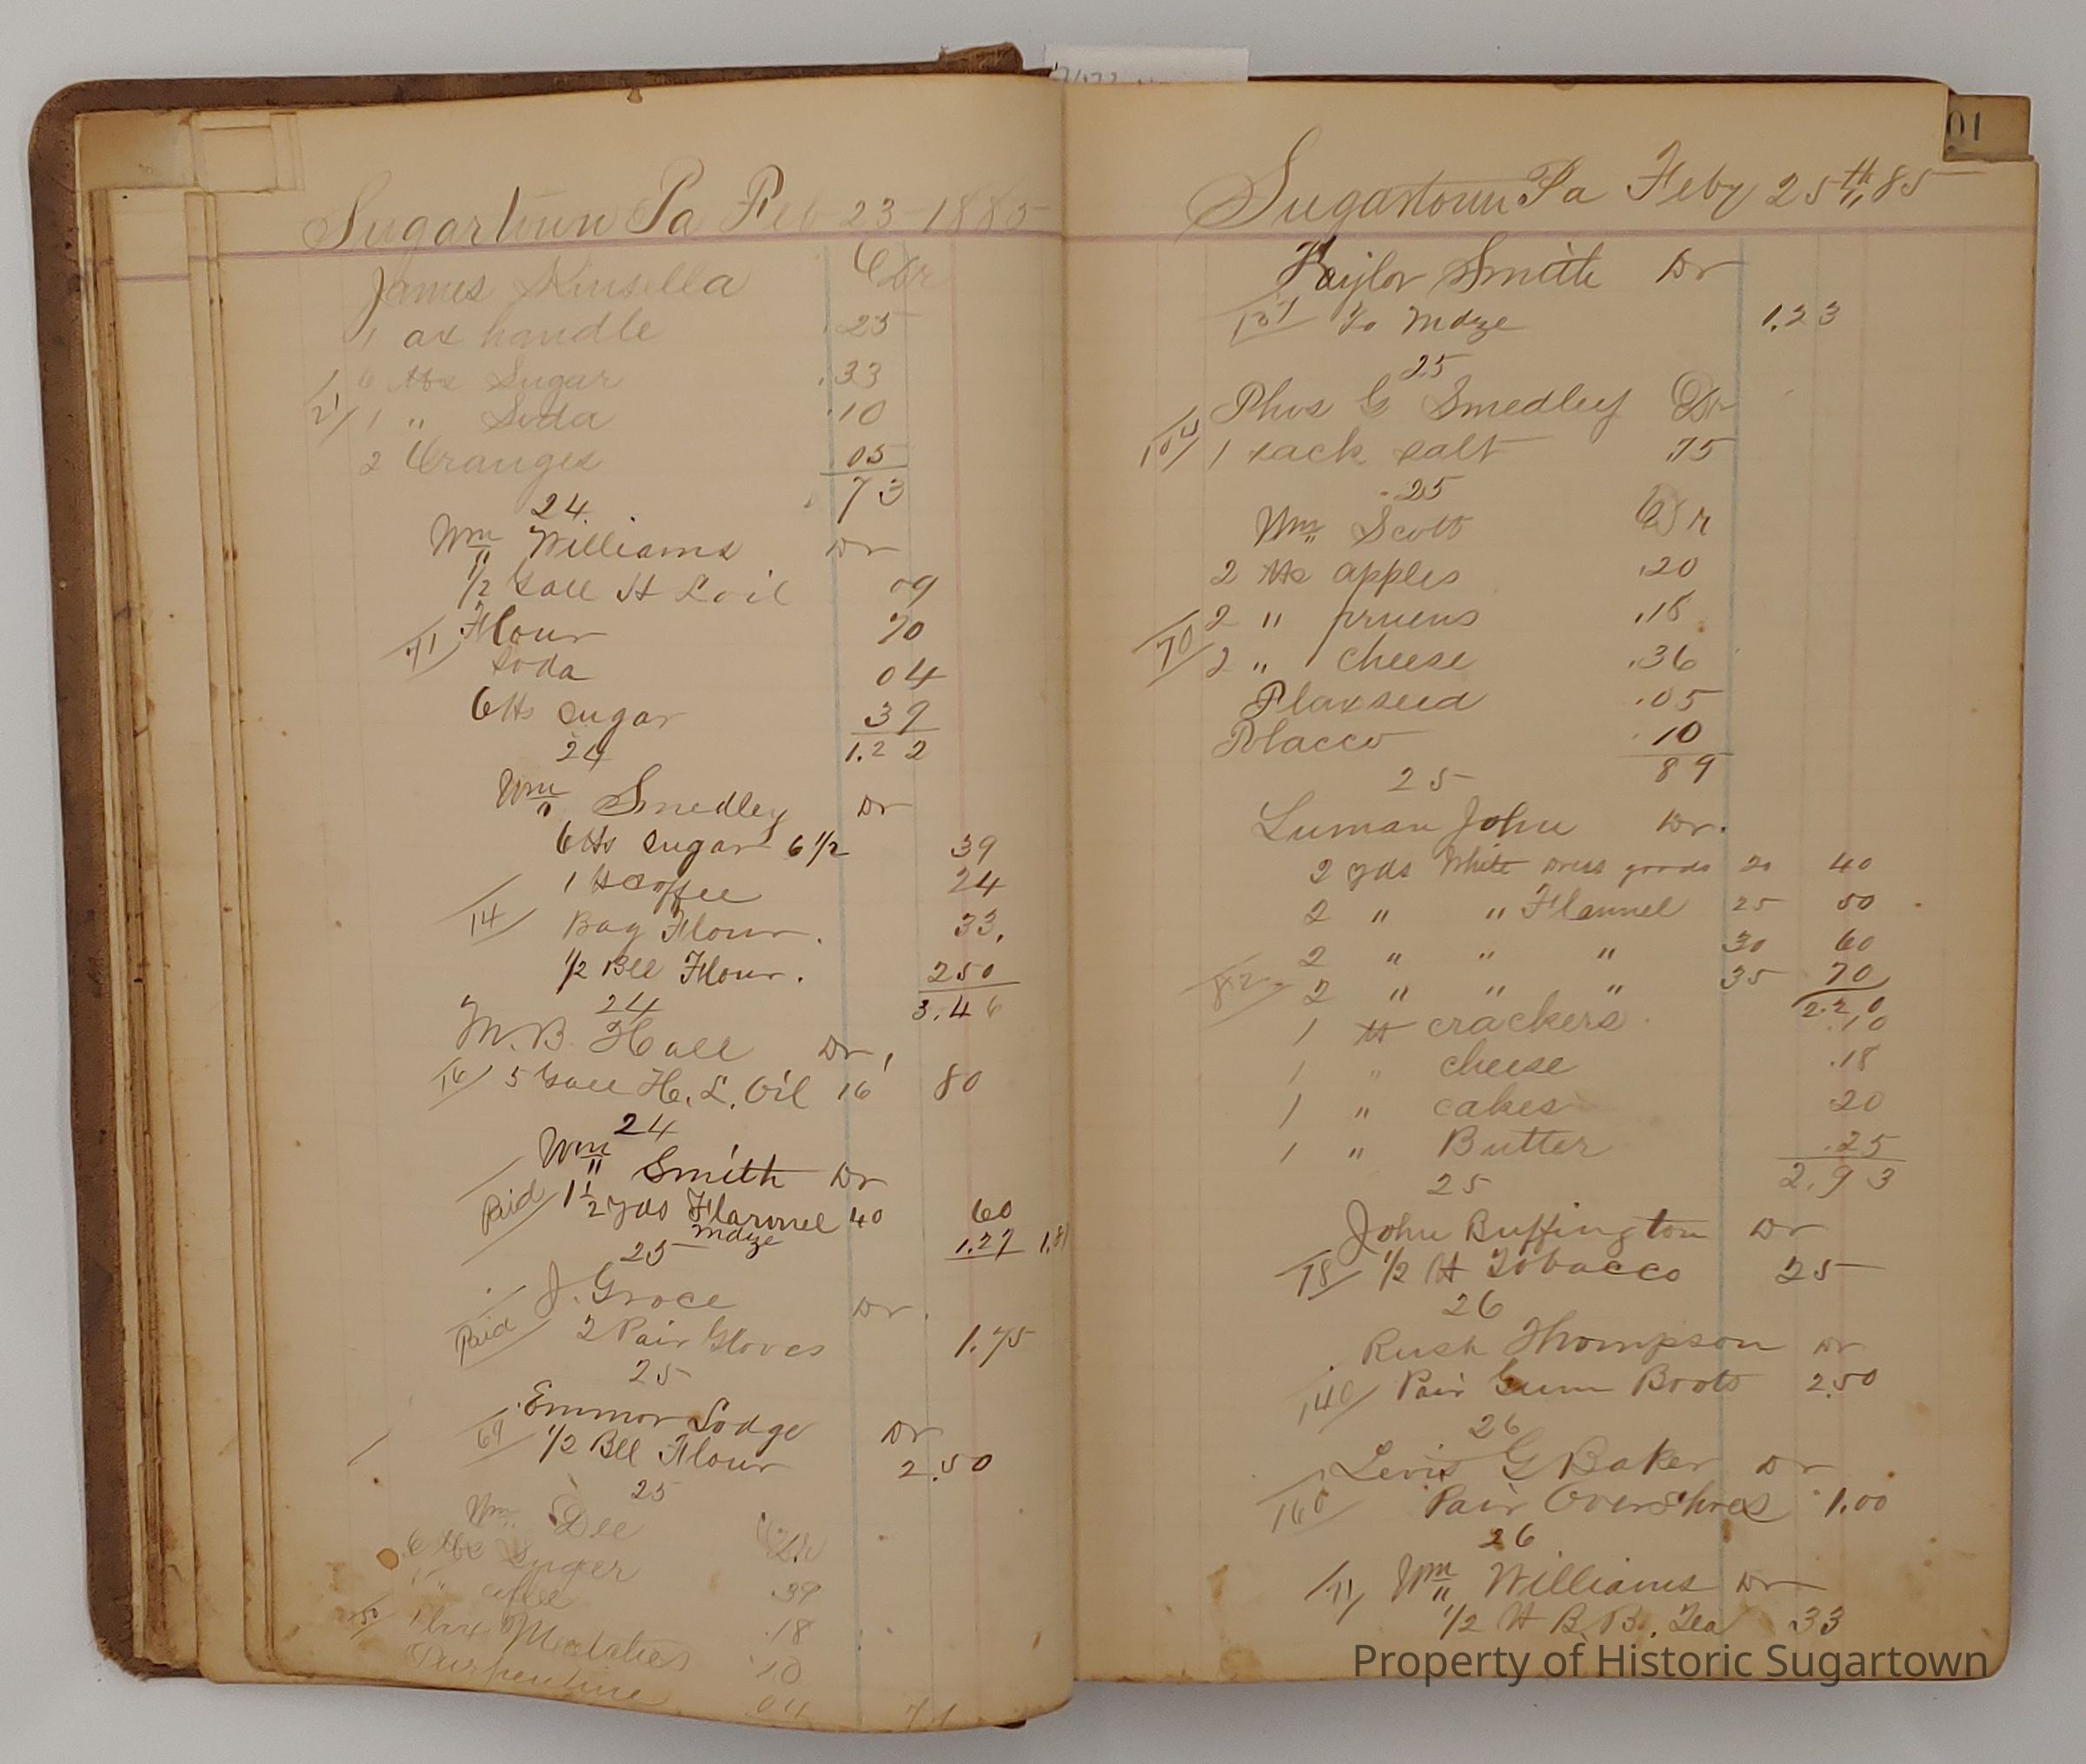 01
Sugartown Pa Feb 23 1885
James Kinsella Dr
1 ax handle .25
6 lbs Sugar .33
21 1 " Soda .10
2 Oranges .05
73
24
Wm Williams Dr
1/2 Gall H L oil 09
71 Flour 70
Soda 04
6 lbs sugar 39
1.22
24
Wm Smedley Dr
6 lbs sugar 6 1/2 39
1 lb coffee 24
14 Bag Flour. 33.
1/2 Bll Flour. 250
3.46
24
M. B. Hall Dr
16 5 Gall H. L. Oil 16 80
24
Wm Smith Dr
Paid 1 1/2 yds Flannel 40 60
Mdze 1.27 1.8
25
J. Groce Dr.
Paid 2 Pair Gloves 1.75
25
Emmor Lodge Dr
69 1/2 Bll Flour 2.50
25
Wm Dee Dr
6 lbs Suger .39
1 " coffee .18
50 1 box .10
Turpentine 04 71
Sugartown Pa Feby 25th, 85
Taylor Smith Dr
To Mdze 1.23
25
Phos G Smedley Dr
1 sack salt .75
25
Wm Scott Dr
2 lbs apples .20
2 " pruens .18
70 2 " cheese .36
Flaxseed .05
Tobacco .10
89
25
Luman John Dr.
2 yds White Dress goods 20 40
2 " " Flannel 25 50
2 " " " 30 60
82 2 " " " 35 70
2.20
1 lb crackers .10
1 " cheese .18
1 " cakes 20
1 " Butter .25
2.93
25
John Buffington Dr
78 1/2 lb Tobacco 25
26
Rush Thompson Dr
140 Pair Gum Boots 2.50
26
Levis G Baker Dr
160 Pair Overshoes 1.00
26
71 Wm Williams Dr
1/2 lb B. B. Tea 33
Property of Historic Sugartown